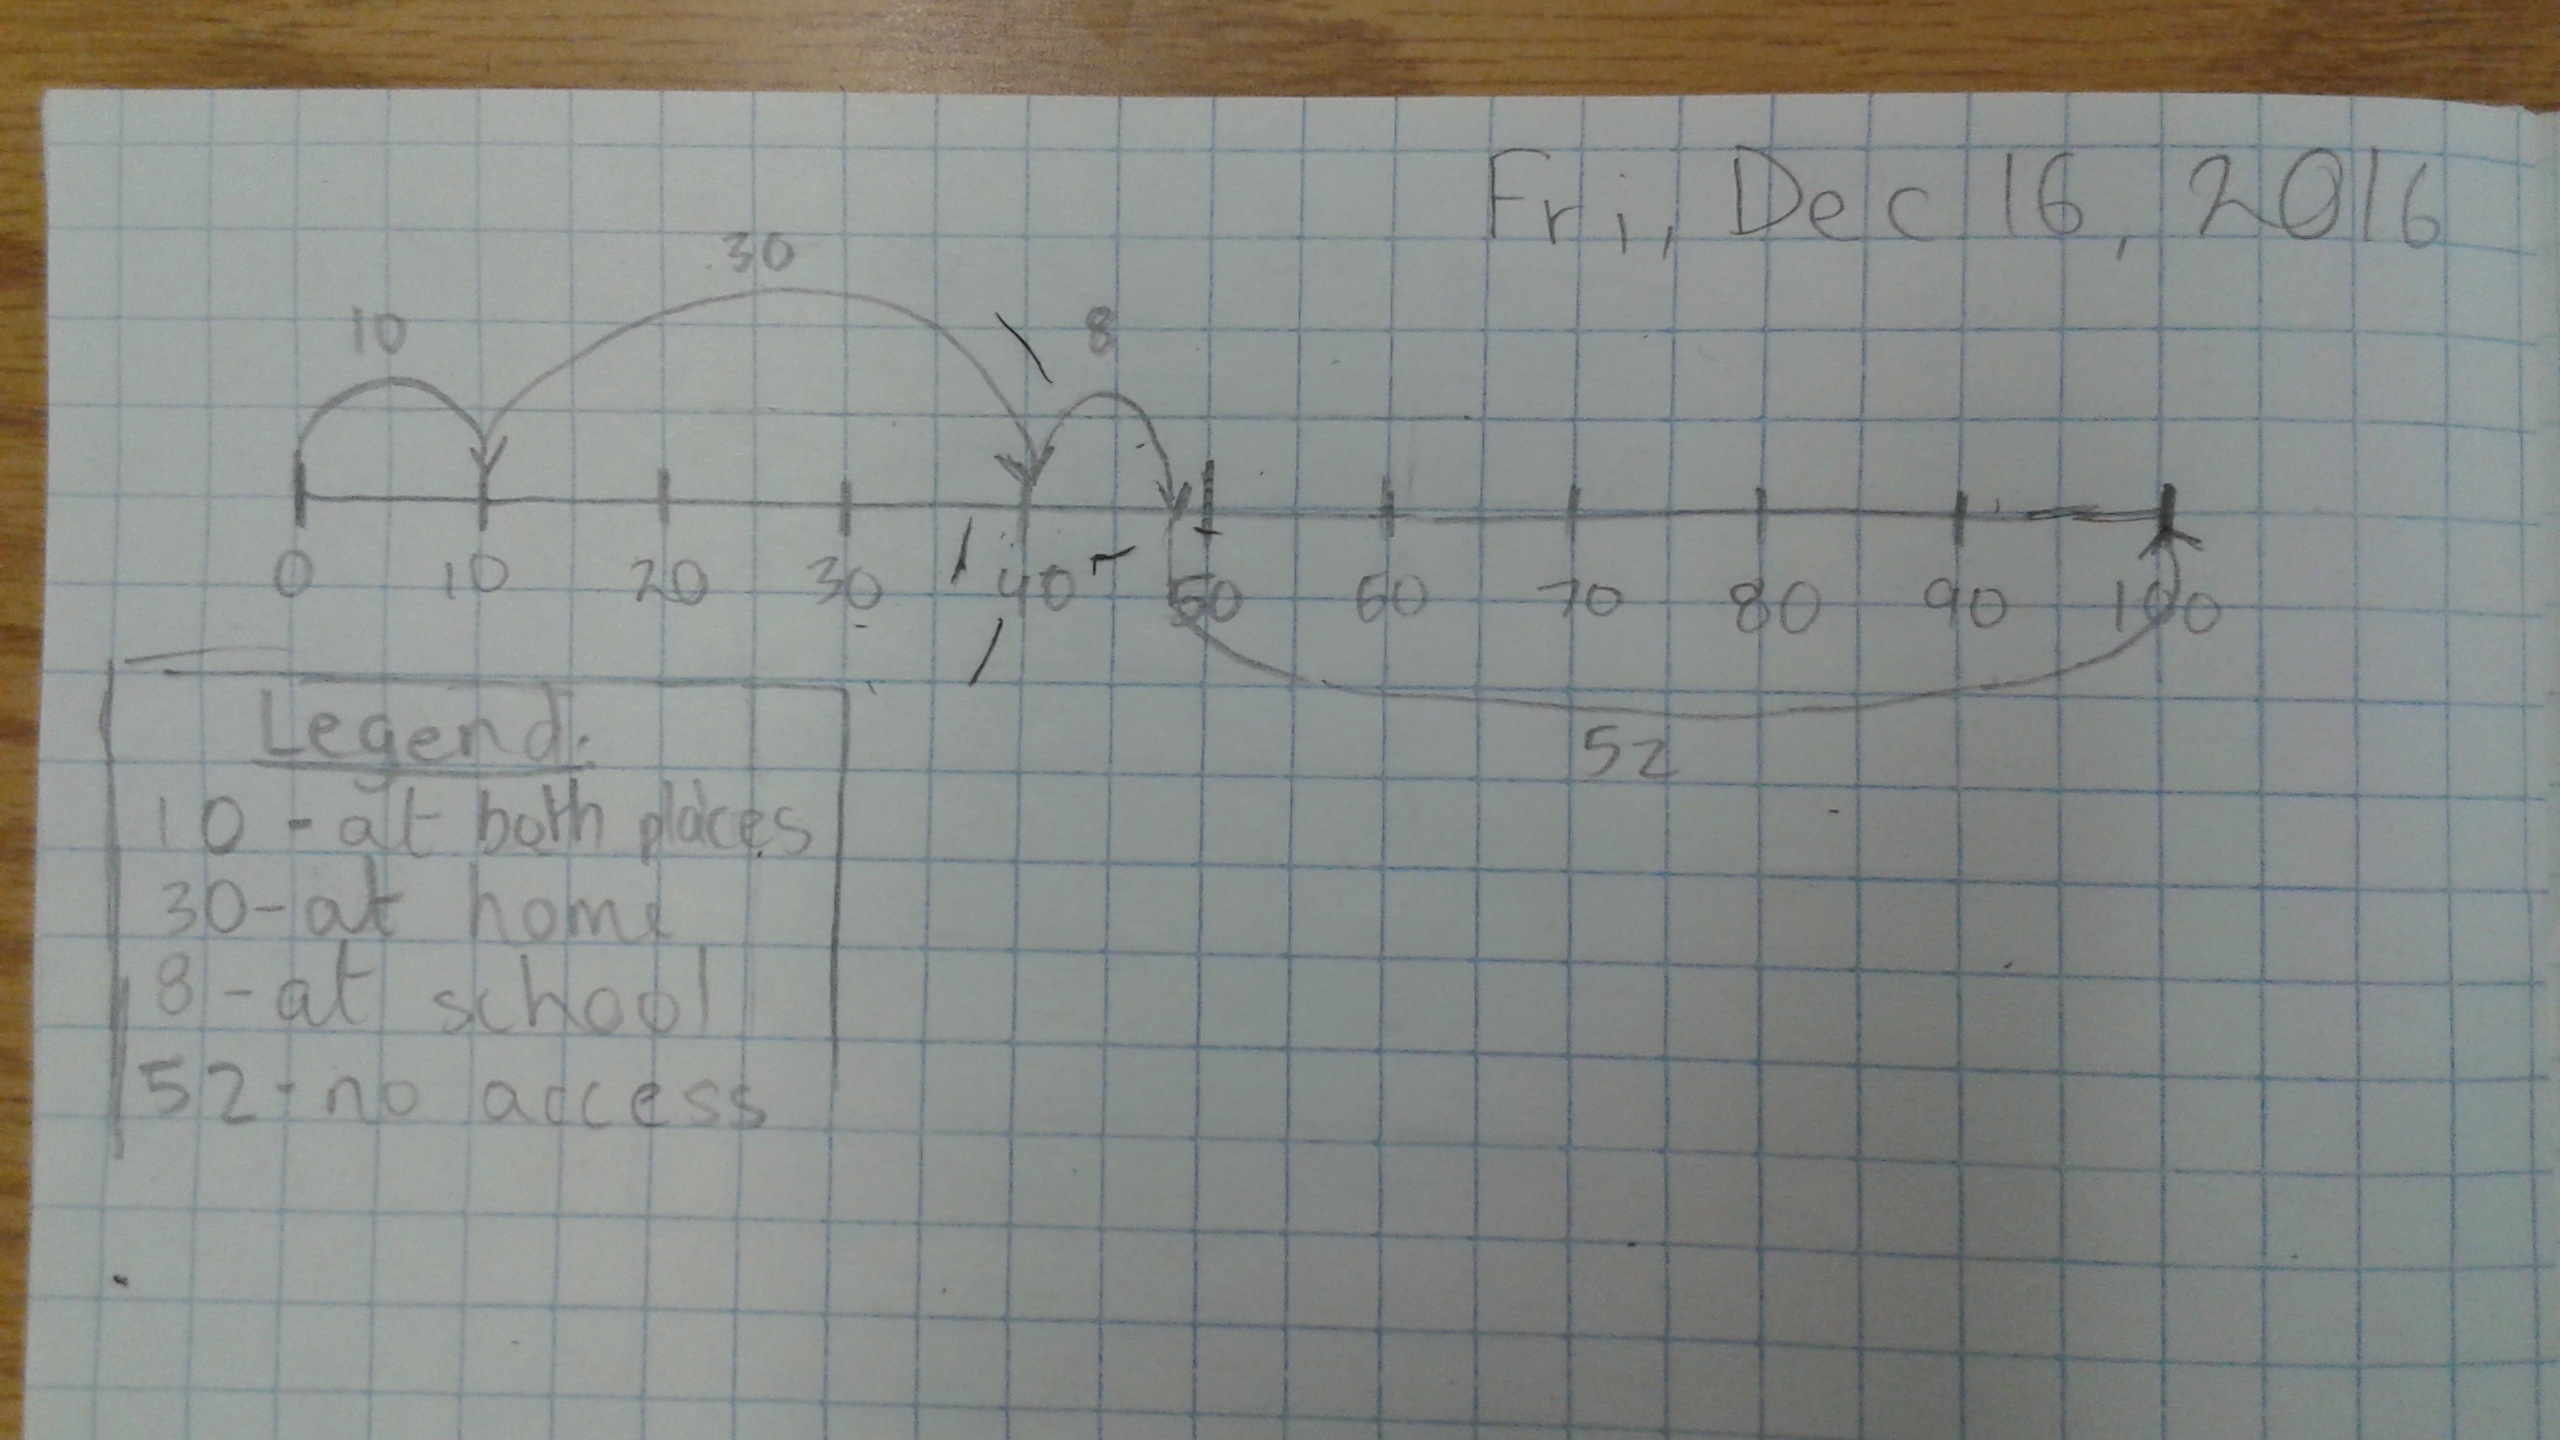 Fri, Dec 16, 2016
30
10
8
0 10 20 30 40 50 60 70 80 90 100
52
Legend:
10 - at both places
30 - at home
8 - at school
52 - no access